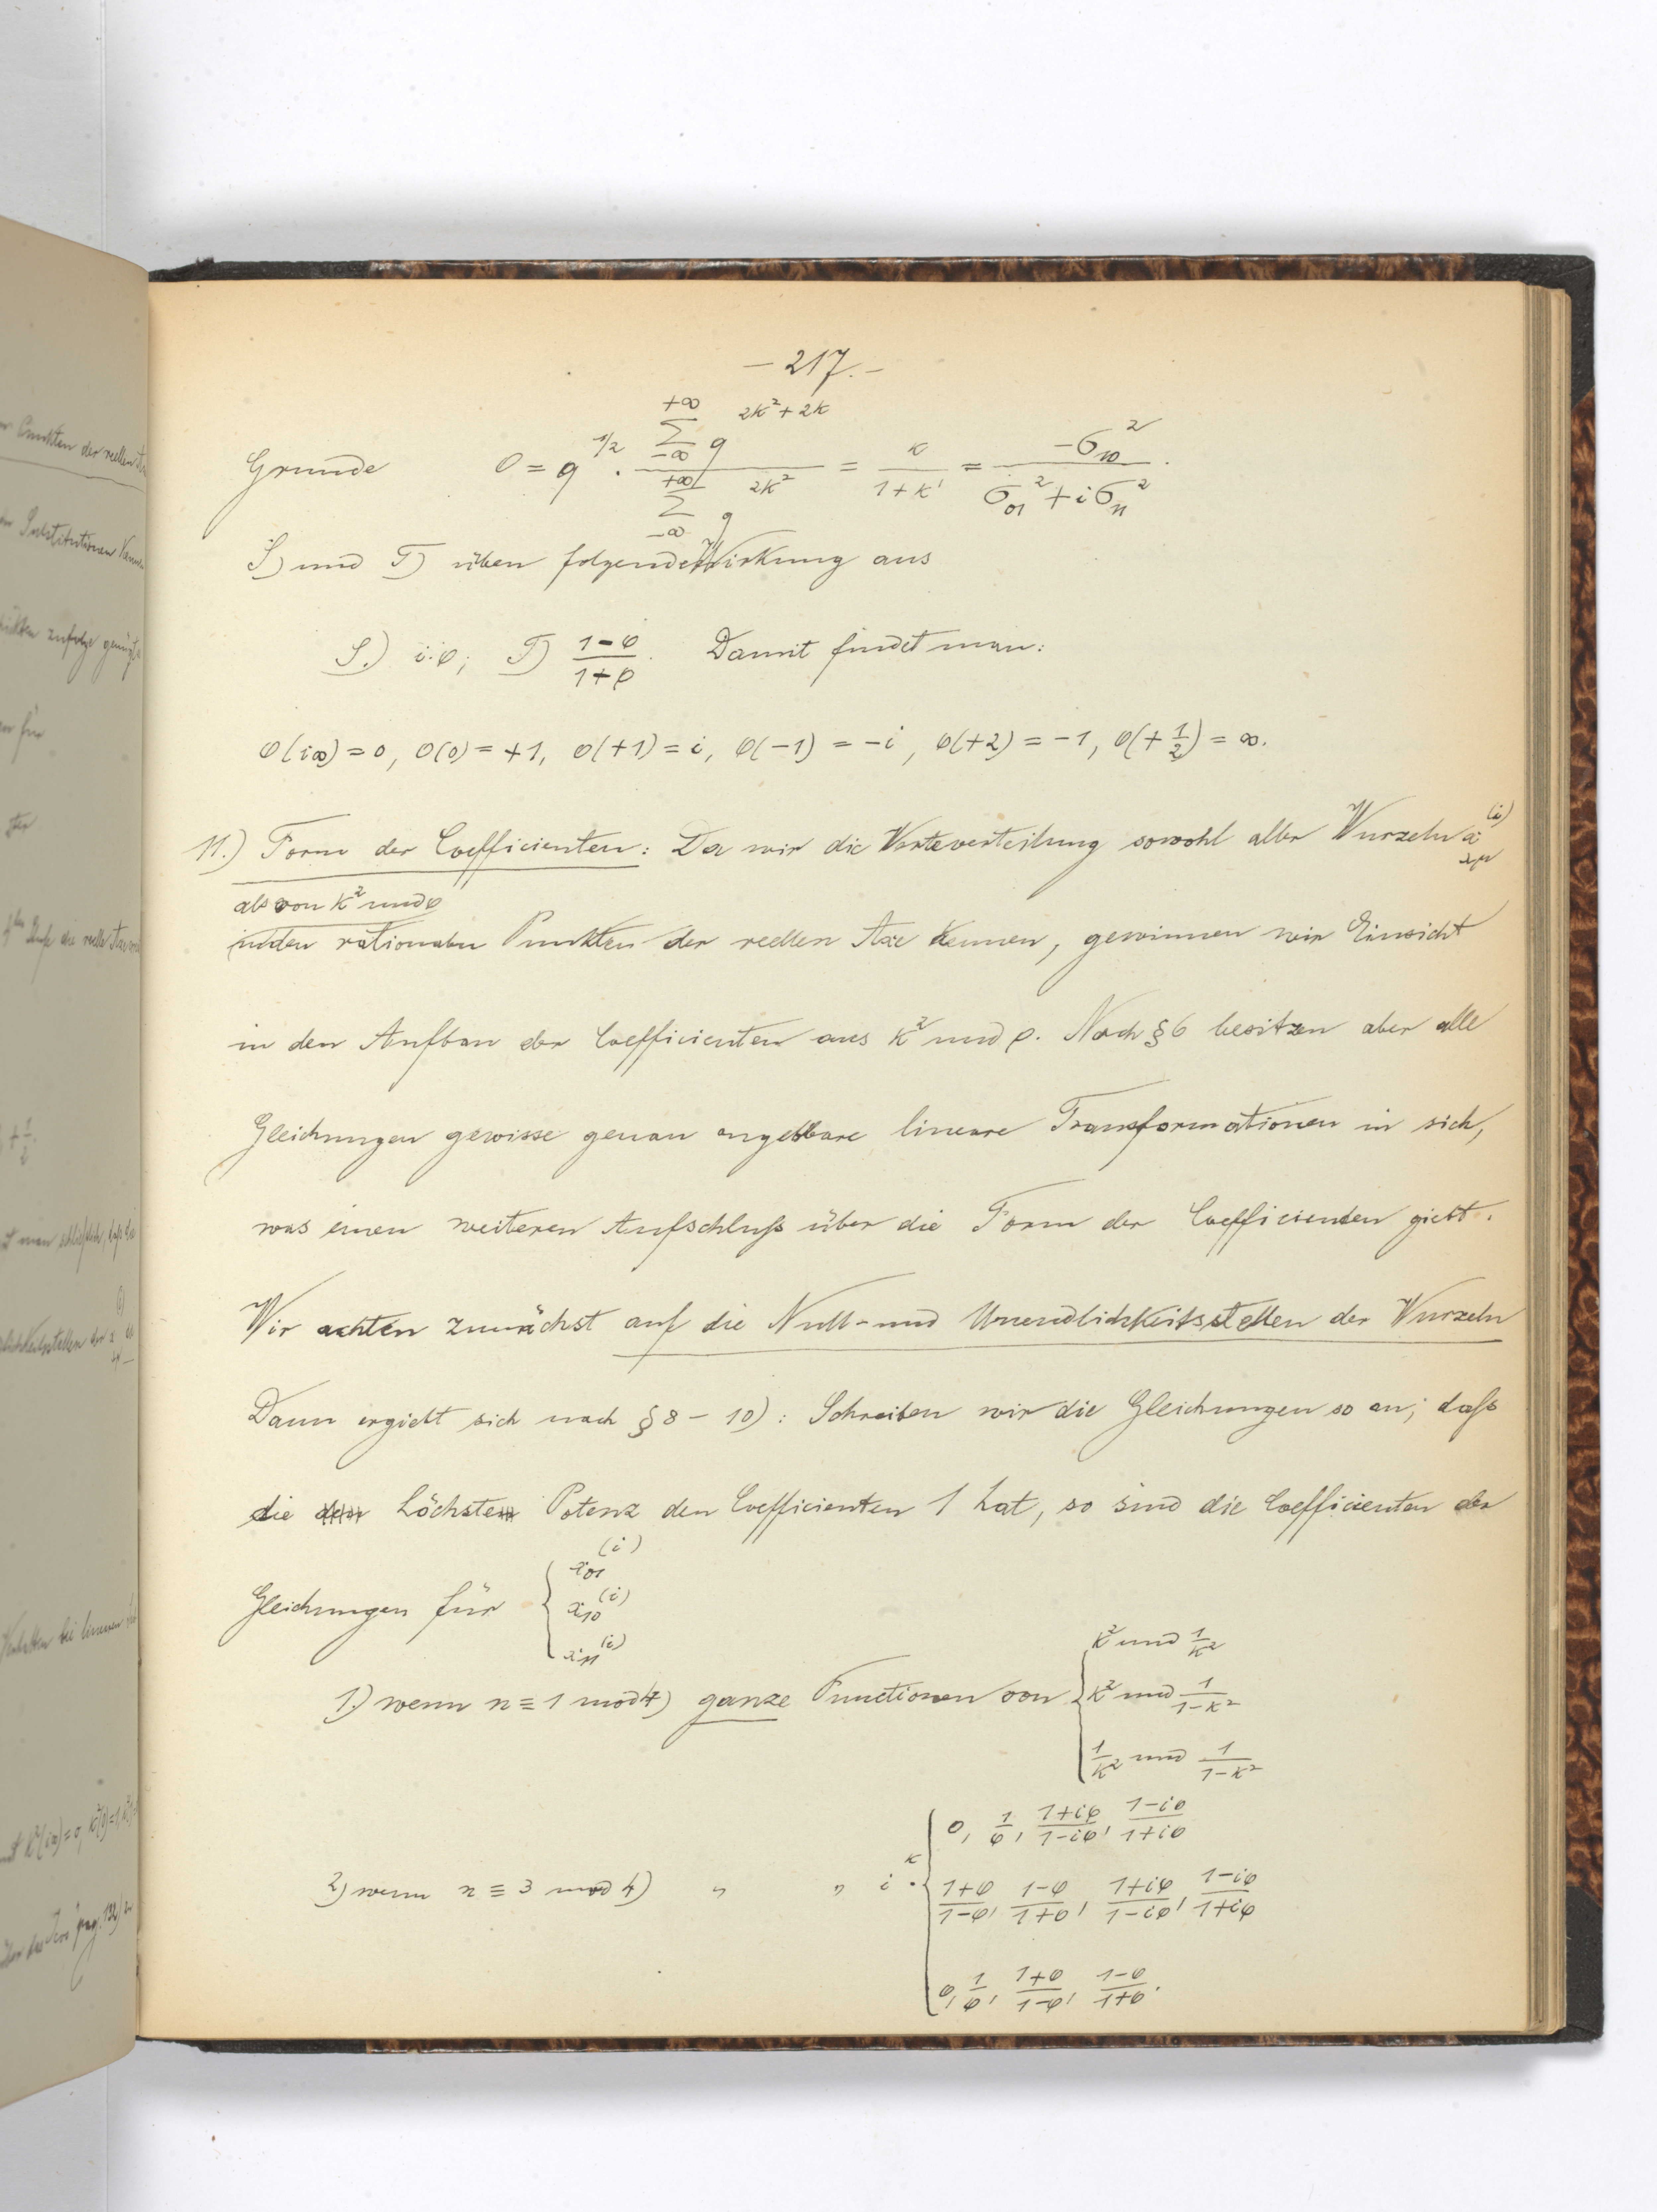 – 217. –
Grunde φ = q^{1/2} · \frac{\sum_{-∞}^{+∞} q^{2κ²+2κ}}{\sum_{-∞}^{+∞} q^{2κ²}} = \frac{κ}{1+κ'} = \frac{-σ_{10}^2}{σ_{01}^2 + iσ_{11}^2}.
S) und T) üben folgende Wirkung aus
S.) i·φ; T) \frac{1-φ}{1+φ}. Damit findet man:
φ(i∞) = 0, φ(0) = +1, φ(+1) = i, φ(-1) = -i, φ(+2) = -1, φ(+\frac{1}{2}) = ∞.
11.) Form der Coefficienten: Da wir die Werteverteilung sowohl aller Wurzeln x_{λμ}^{(i)}
als von κ² und φ
in den rationalen Punkten der reellen Axe kennen, gewinnen wir Einsicht
in den Aufbau der Coefficienten aus κ² und φ. Nach §6 besitzen aber alle
Gleichungen gewisse genau angebbare lineare Transformationen in sich,
was einen weiteren Aufschluß über die Form der Coefficienten giebt.
Wir achten zunächst auf die Null- und Unendlichkeitsstellen der Wurzeln
Dann ergiebt sich nach §8 – 10): Schreiben wir die Gleichungen so an, daß
die höchste Potenz den Coefficienten 1 hat, so sind die Coefficienten der
Gleichungen für { x_{01}^{(i)}
x_{10}^{(i)}
x_{11}^{(i)}
1.) wenn n ≡ 1 mod 4) ganze Functionen von { κ² und \frac{1}{κ²}
κ² und \frac{1}{1-κ²}
\frac{1}{κ²} und \frac{1}{1-κ²}
2) wenn n ≡ 3 mod 4) " " i^κ · { φ, \frac{1}{φ}, \frac{1+iφ}{1-iφ}, \frac{1-iφ}{1+iφ}
\frac{1+φ}{1-φ}, \frac{1-φ}{1+φ}, \frac{1+iφ}{1-iφ}, \frac{1-iφ}{1+iφ}
φ, \frac{1}{φ}, \frac{1+φ}{1-φ}, \frac{1-φ}{1+φ}.